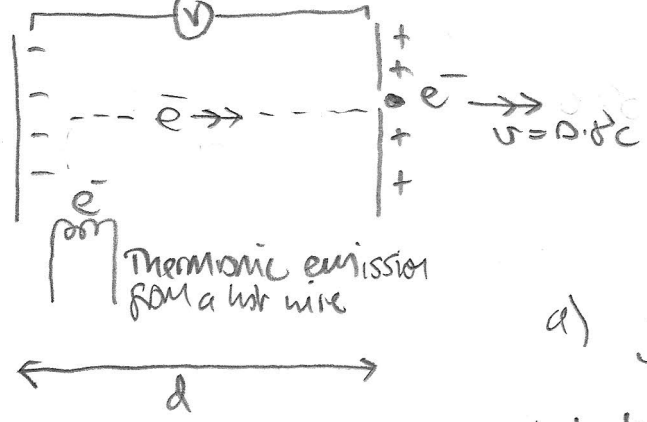 V
− +
− +
− e⁻ e⁻ v = 0.8c
− +
− +
e⁻
Thermionic emission
from a hot wire
a)
d